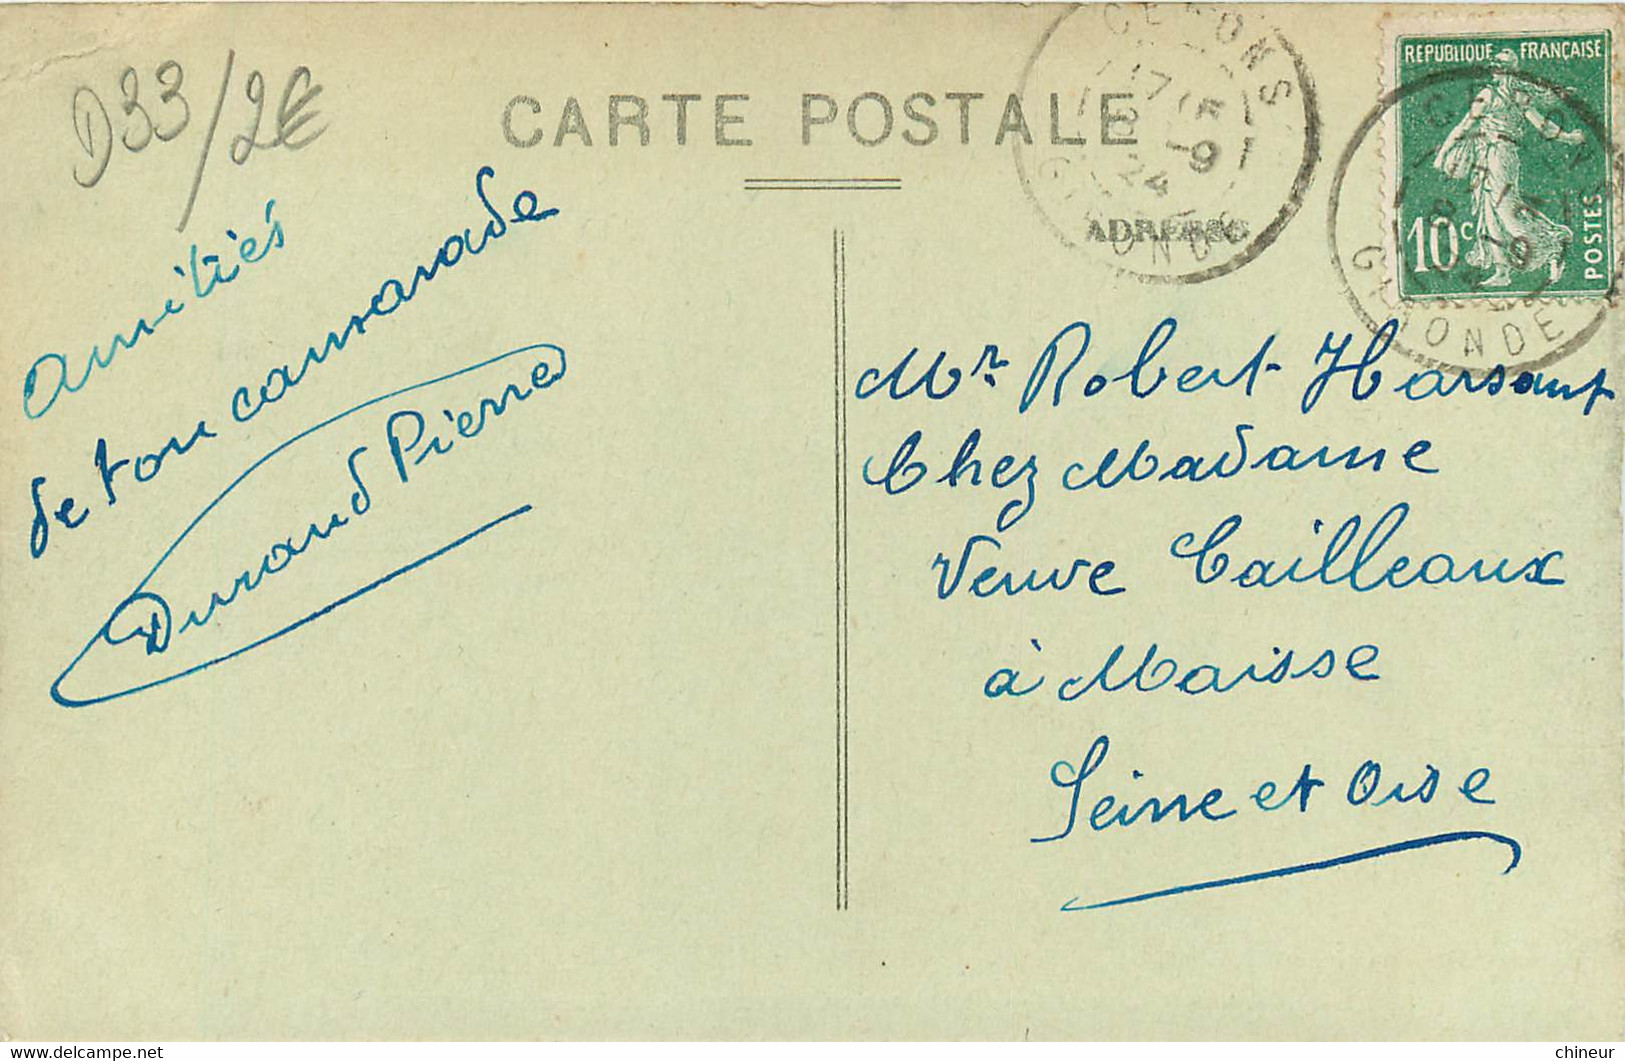 D33/2€
CARTE POSTALE
ADRESSE
CERONS
17 15
8 - 9
24
GIRONDE
REPUBLIQUE FRANÇAISE
10c
POSTES
CERONS
GIRONDE
Amitiés
de ton camarade
Durand Pierre
Mr. Robert Harsant
Chez Madame
Veuve Cailleaux
à Maisse
Seine et Oise
chineur